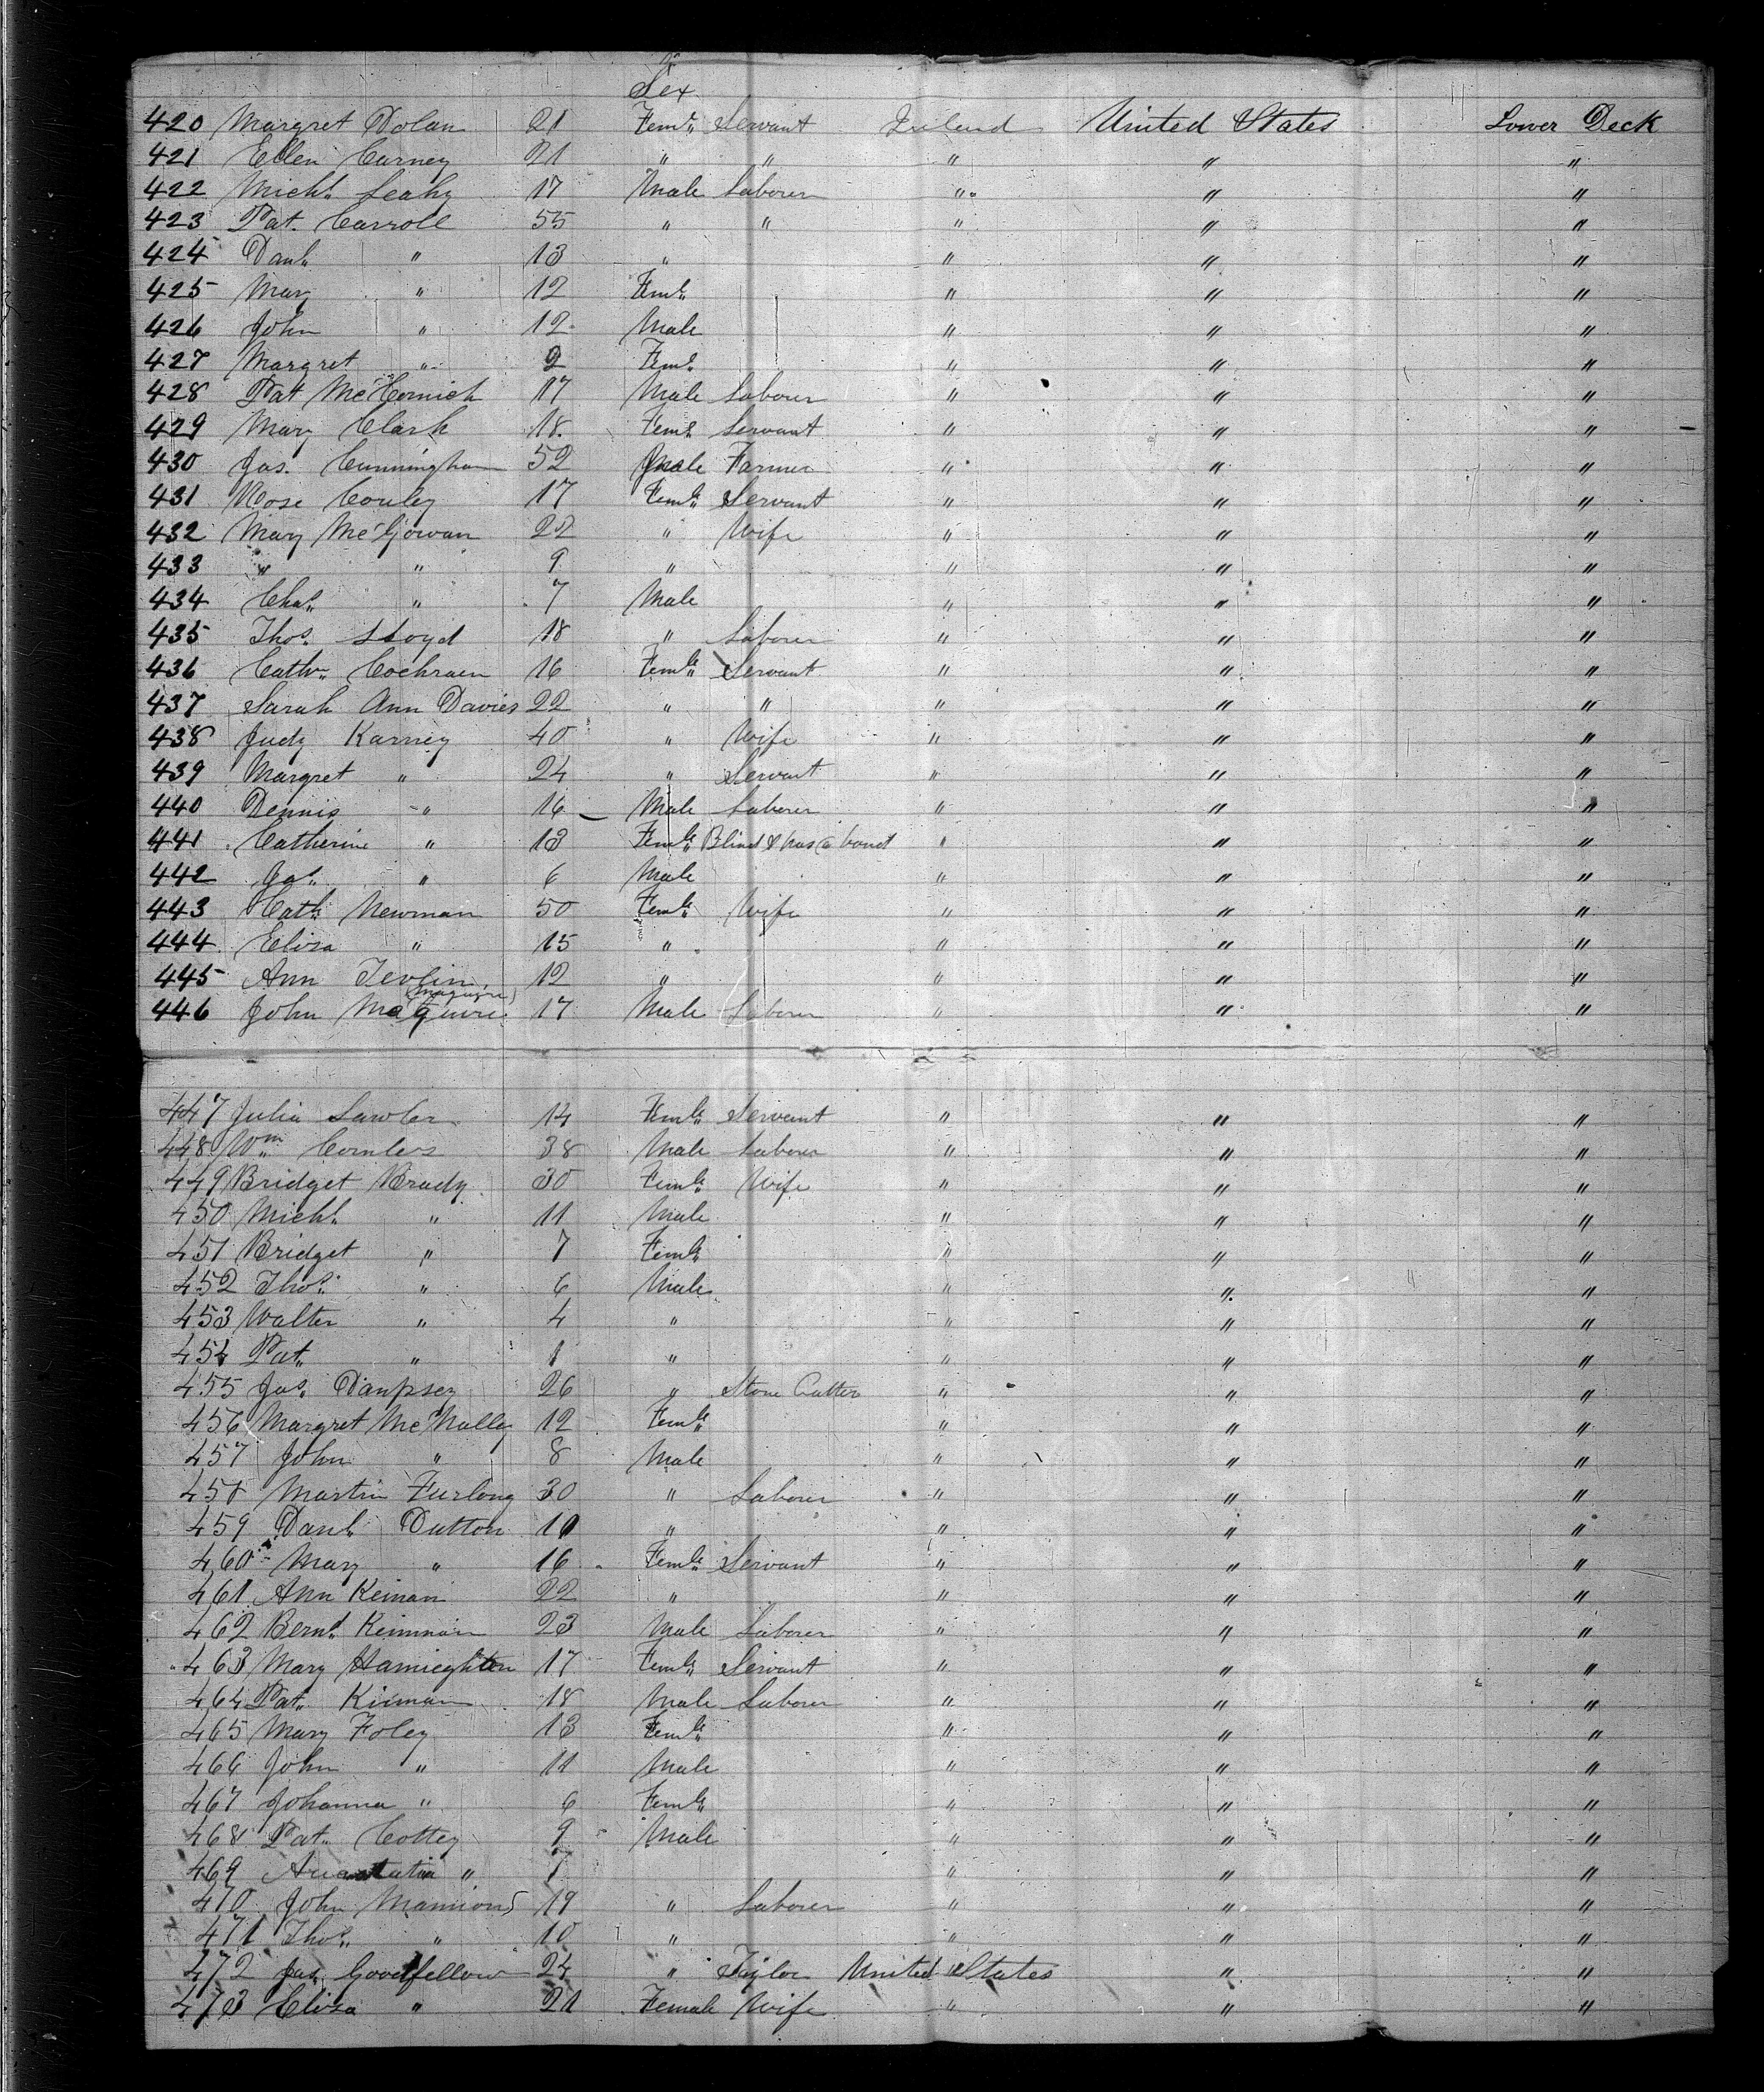 Sex
420 Margret Dolan 21 Feml. Servant Ireland United States Lower Deck
421 Ellen Carney 21 " " " " "
422 Michl. Leahy 17 Male Laborer " " "
423 Pat. Carroll 55 " " " " "
424 Danl. " 13 " " " "
425 Mary " 12 Feml. " " "
426 John " 12 Male " " "
427 Margret " 2 Feml. " " "
428 Pat McCormick 17 Male Laborer " " "
429 Mary Clark 18 Feml. Servant " " "
430 Jas. Cunningham 52 Male Farmer " " "
431 Rose Couley 17 Feml. Servant " " "
432 Mary McGowan 22 " Wife " " "
433 " " 9 " " " "
434 Chas. " 7 Male " " "
435 Thos. Lloyd 18 " Laborer " " "
436 Cathn. Cochraen 16 Feml. Servant " " "
437 Sarah Ann Davies 22 " " " " "
438 Judy Karney 40 " Wife " " "
439 Margret " 24 " Servant " " "
440 Dennis " 16 Male Laborer " " "
441 Catherine " 13 Feml. Blind & has a bond " " "
442 Jas. " 6 Male " " "
443 Cath. Newman 50 Feml. Wife " " "
444 Eliza " 15 " " " "
445 Ann Tevlin 12 " " " "
446 John McQuire (Maguire) 17 Male Laborer " " "
447 Julia Lawler 14 Feml. Servant " " "
448 Wm. 38 Male Laborer " " "
449 Bridget Brady 30 Feml. Wife " " "
450 Michl. " 11 Male " " "
451 Bridget " 7 Feml. " " "
452 Thos. " 6 Male " " "
453 Walter " 4 " " " "
454 Pat. " 1 " " " "
455 Jas. Dampsey 26 " Stone Cutter " " "
456 Margret McNally 12 Feml. " " "
457 John " 8 Male " " "
458 Martin Furlong 30 " Laborer " " "
459 Danl. Dutton 10 " " " "
460 Mary " 16 Feml. Servant " " "
461 Ann Keinan 22 " " " "
462 Bernd. Keinnan 23 Male Laborer " " "
463 Mary 17 Feml. Servant " " "
464 Pat. Kiernan 18 Male Laborer " " "
465 Mary Foley 13 Feml. " " "
466 John " 11 Male " " "
467 Johanna " 6 Feml. " " "
468 Pat. Cottey 9 Male " " "
469 " 7 " " "
470 John Mannions 19 " Laborer " " "
471 Thos. " 10 " " " "
472 Jas. Goodfellow 24 " Taylor United States " "
473 Eliza " 21 Female Wife " " "